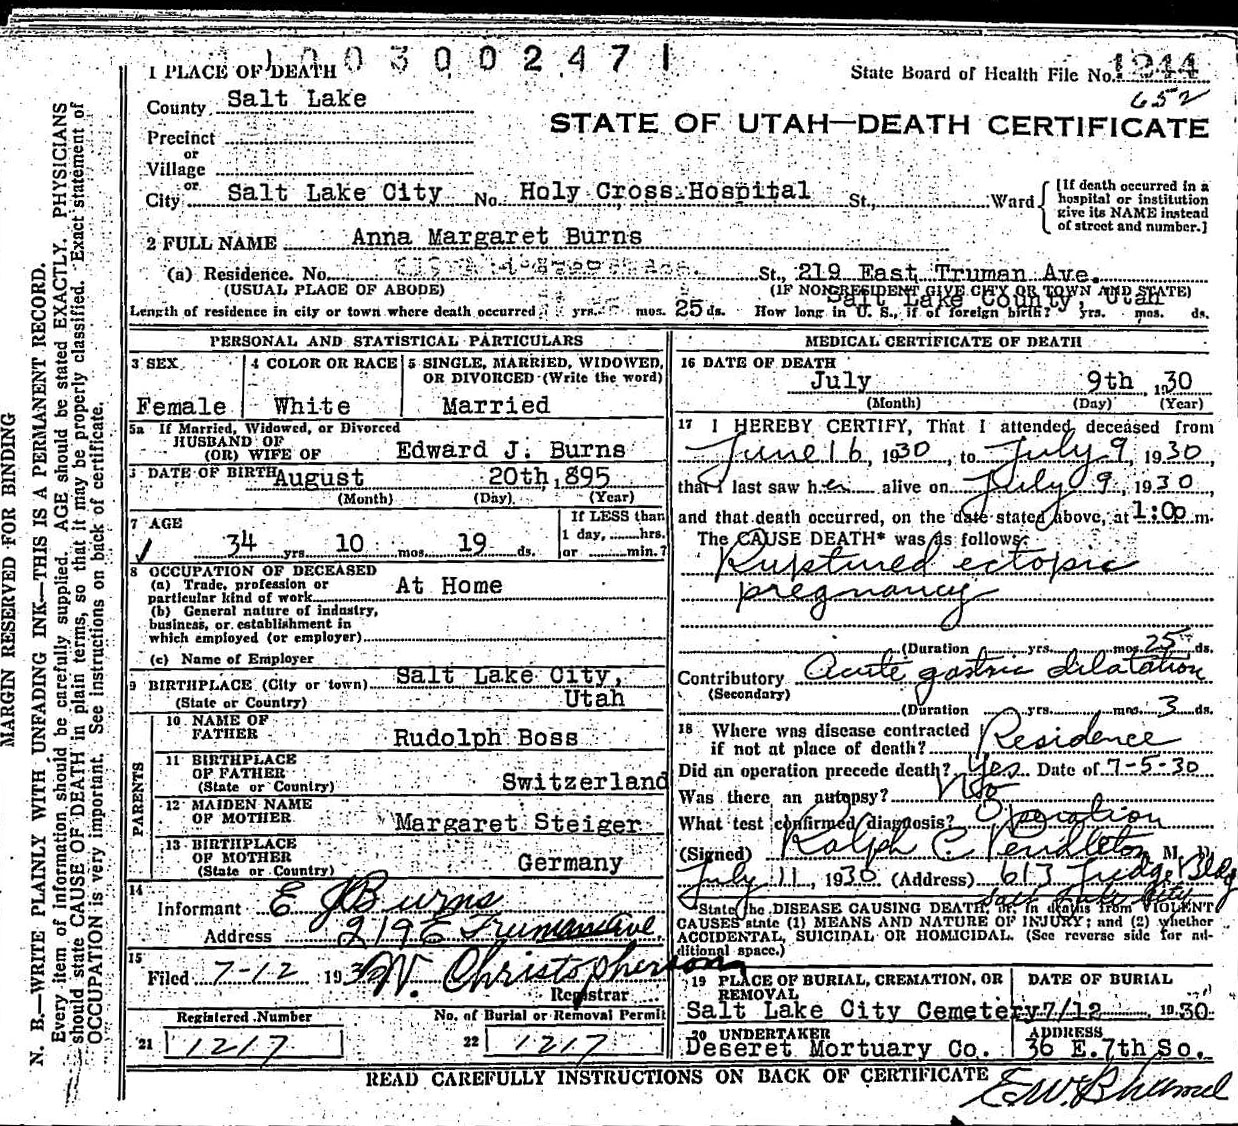 1003002471
1 PLACE OF DEATH
State Board of Health File No. 1244
652
County Salt Lake
STATE OF UTAH—DEATH CERTIFICATE
Precinct
or
Village
or
City Salt Lake City No. Holy Cross Hospital St., Ward
[If death occurred in a
hospital or institution
give its NAME instead
of street and number.]
2 FULL NAME Anna Margaret Burns
(a) Residence. No. St., 219 East Truman Ave.
(USUAL PLACE OF ABODE) (IF NONRESIDENT GIVE CITY OR TOWN AND STATE)
Salt Lake County, Utah
Length of residence in city or town where death occurred yrs. mos. 25 ds. How long in U. S., if of foreign birth? yrs. mos. ds.
PERSONAL AND STATISTICAL PARTICULARS
3 SEX
Female
4 COLOR OR RACE
White
5 SINGLE, MARRIED, WIDOWED,
OR DIVORCED (Write the word)
Married
5a If Married, Widowed, or Divorced
HUSBAND OF
(OR) WIFE OF Edward J. Burns
DATE OF BIRTH August 20th, 1895
(Month) (Day) (Year)
7 AGE
34 yrs. 10 mos. 19 ds.
If LESS than
1 day, hrs.
or min.?
8 OCCUPATION OF DECEASED
(a) Trade, profession or
particular kind of work At Home
(b) General nature of industry,
business, or establishment in
which employed (or employer)
(c) Name of Employer
9 BIRTHPLACE (City or town) Salt Lake City,
(State or Country) Utah
PARENTS
10 NAME OF
FATHER Rudolph Boss
11 BIRTHPLACE
OF FATHER
(State or Country) Switzerland
12 MAIDEN NAME
OF MOTHER Margaret Steiger
13 BIRTHPLACE
OF MOTHER
(State or Country) Germany
14
Informant E J Burns
Address 219 E Truman Ave.
15
Filed 7-12 1930 W. Christopherson
Registrar
Registered Number
21 1217
No. of Burial or Removal Permit
22 1217
MEDICAL CERTIFICATE OF DEATH
16 DATE OF DEATH
July 9th 1930
(Month) (Day) (Year)
17 I HEREBY CERTIFY, That I attended deceased from
June 16, 1930, to July 9, 1930,
that I last saw her alive on July 9, 1930
and that death occurred, on the date stated above, at 1:00 m.
The CAUSE DEATH* was as follows:
Ruptured ectopic
pregnancy
(Duration yrs. mos. 25 ds.
Contributory Acute gastric dilatation
(Secondary)
(Duration yrs. mos. 3 ds.
18 Where was disease contracted
if not at place of death? Residence
Did an operation precede death? Yes Date of 7-5-30
Was there an autopsy? No
What test confirmed diagnosis? Operation
(Signed) Ralph C. Pendleton M. D.
July 11, 1930 (Address) 613 Judge Bldg
Salt Lake City
State the DISEASE CAUSING DEATH, or, in deaths from VIOLENT
CAUSES state (1) MEANS AND NATURE OF INJURY; and (2) whether
ACCIDENTAL, SUICIDAL OR HOMICIDAL. (See reverse side for ad-
ditional space.)
19 PLACE OF BURIAL, CREMATION, OR
REMOVAL
Salt Lake City Cemetery
DATE OF BURIAL
7/12 1930
20 UNDERTAKER
Deseret Mortuary Co.
ADDRESS
36 E. 7th So.
READ CAREFULLY INSTRUCTIONS ON BACK OF CERTIFICATE
MARGIN RESERVED FOR BINDING
N. B.—WRITE PLAINLY WITH UNFADING INK—THIS IS A PERMANENT RECORD.
Every item of information should be carefully supplied. AGE should be stated EXACTLY. PHYSICIANS
should state CAUSE OF DEATH in plain terms, so that it may be properly classified. Exact statement of
OCCUPATION is very important. See instructions on back of certificate.